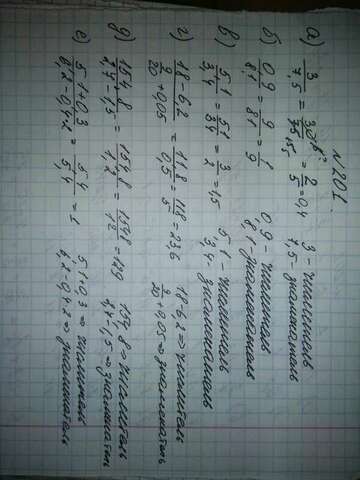 № 201.
а) 3/7,5 = 30/75 = 2/5 = 0,4 3 - числитель
7,5 - знаменатель
б) 0,9/8,1 = 9/81 = 1/9 0,9 - числитель
8,1 - знаменатель
в) 5,1/3,4 = 51/34 = 3/2 = 1,5 5,1 - числитель
3,4 - знаменатель
г) 18-6,2/9/20+0,05 = 11,8/0,5 = 118/5 = 23,6 18-6,2 ⇒ числитель
9/20+0,05 ⇒ знаменатель
д) 154,8/2,7-1,5 = 154,8/1,2 = 1548/12 = 129 154,8 ⇒ числитель
2,7-1,5 ⇒ знаменатель
е) 5,1+0,3/6,2-0,4·2 = 5,4/5,4 = 1 5,1+0,3 ⇒ числитель
6,2-0,4·2 ⇒ знаменатель